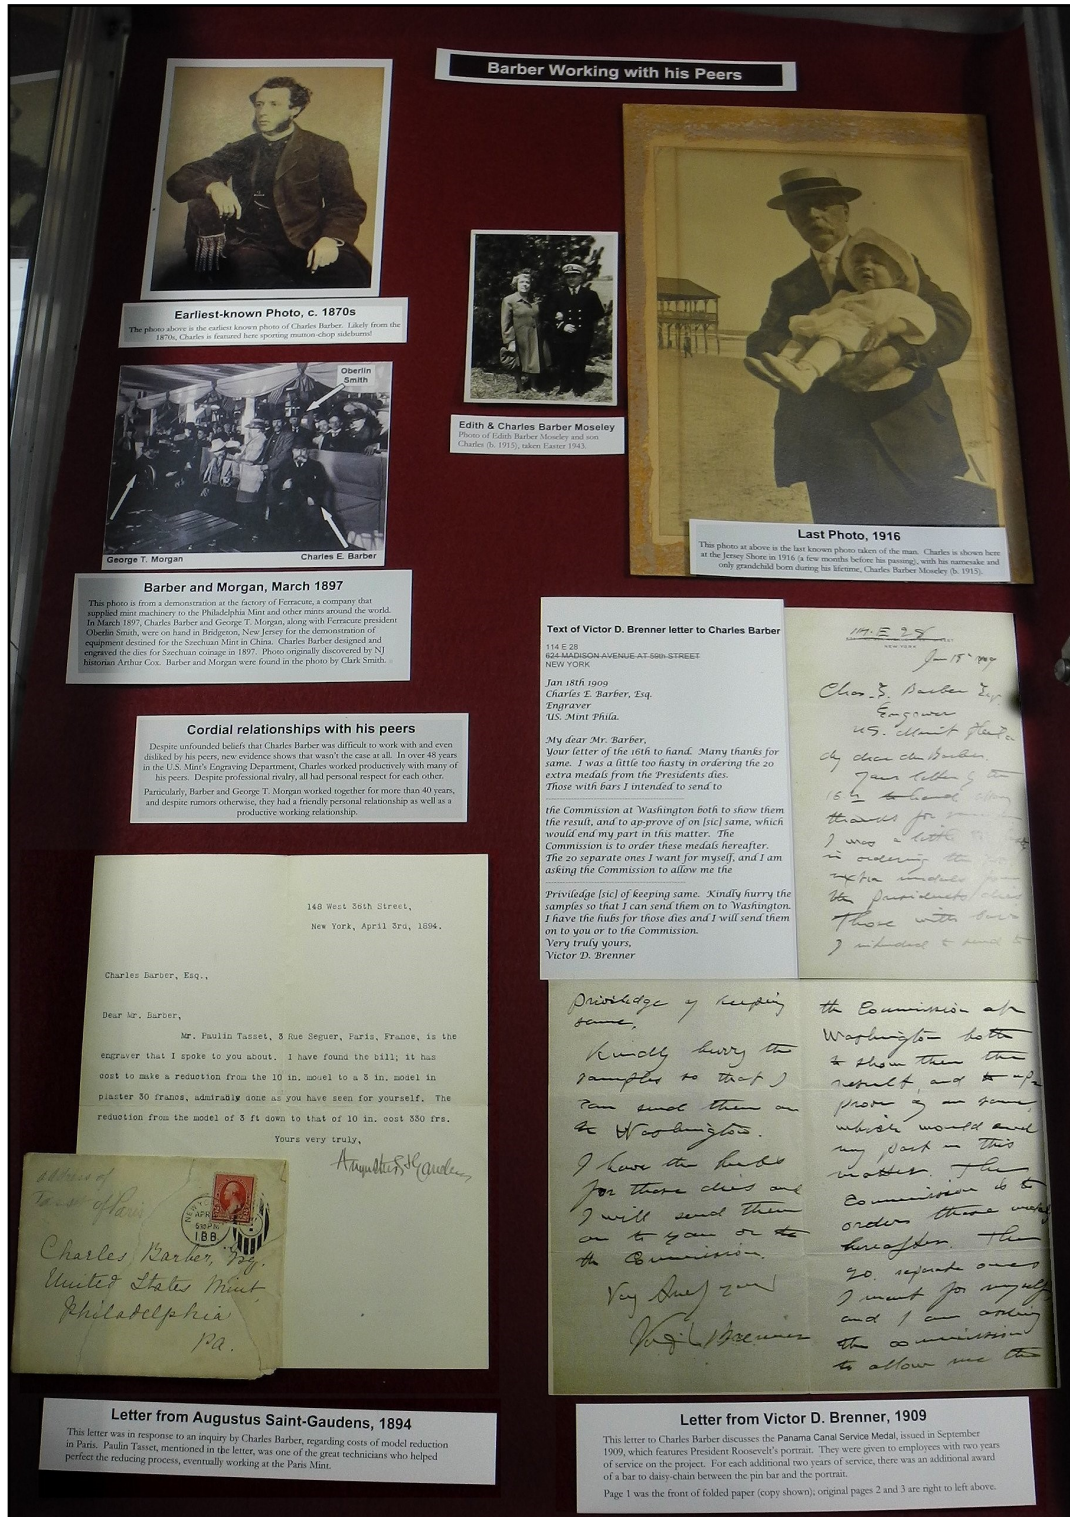 Barber Working with his Peers
Earliest-known Photo, c. 1870s
The photo above is the earliest known photo of Charles Barber. Likely from the
1870s, Charles is featured here sporting mutton-chop sideburns!
Oberlin
Smith
George T. Morgan
Charles E. Barber
Barber and Morgan, March 1897
This photo is from a demonstration at the factory of Ferracute, a company that
supplied mint machinery to the Philadelphia Mint and other mints around the world.
In March 1897, Charles Barber and George T. Morgan, along with Ferracute president
Oberlin Smith, were on hand in Bridgeton, New Jersey for the demonstration of
equipment destined for the Szechuan Mint in China. Charles Barber designed and
engraved the dies for Szechuan coinage in 1897. Photo originally discovered by NJ
historian Arthur Cox. Barber and Morgan were found in the photo by Clark Smith.
Edith & Charles Barber Moseley
Photo of Edith Barber Moseley and son
Charles (b. 1915), taken Easter 1943.
Last Photo, 1916
This photo at above is the last known photo taken of the man. Charles is shown here
at the Jersey Shore in 1916 (a few months before his passing), with his namesake and
only grandchild born during his lifetime, Charles Barber Moseley (b. 1915).
Cordial relationships with his peers
Despite unfounded beliefs that Charles Barber was difficult to work with and even
disliked by his peers, new evidence shows that wasn't the case at all. In over 48 years
in the U.S. Mint's Engraving Department, Charles worked productively with many of
his peers. Despite professional rivalry, all had personal respect for each other.
Particularly, Barber and George T. Morgan worked together for more than 40 years,
and despite rumors otherwise, they had a friendly personal relationship as well as a
productive working relationship.
Text of Victor D. Brenner letter to Charles Barber
114 E 28
624 MADISON AVENUE AT 59th STREET
NEW YORK
Jan 18th 1909
Charles E. Barber, Esq.
Engraver
US. Mint Phila.
My dear Mr. Barber,
Your letter of the 16th to hand. Many thanks for
same. I was a little too hasty in ordering the 20
extra medals from the Presidents dies.
Those with bars I intended to send to
the Commission at Washington both to show them
the result, and to ap-prove of on [sic] same, which
would end my part in this matter. The
Commission is to order these medals hereafter.
The 20 separate ones I want for myself, and I am
asking the Commission to allow me the
Priviledge [sic] of keeping same. Kindly hurry the
samples so that I can send them on to Washington.
I have the hubs for those dies and I will send them
on to you or to the Commission.
Very truly yours,
Victor D. Brenner
114 E 28
NEW YORK
Jan 18th 1909
Chas. E. Barber Esq.
Engraver
U.S. Mint Phila
My dear Mr Barber.
Your letter of the
16th to hand
thanks for
I was a little
in ordering the
extra medals from
the Presidents dies
Those with bars
I intended to send to
priviledge of keeping
same.
Kindly hurry the
samples so that I
can send them on
to Washington.
I have the hubs
for those dies and
I will send them
on to you or to
the Commission.
Very truly yours
Victor D. Brenner
the Commission at
Washington both
to show them the
result, and to ap-
prove of on same,
which would end
my part in this
matter. The
Commission is to
order these medals
hereafter. The
20 separate ones
I want for myself,
and I am asking
the commission
to allow me the
148 West 36th Street,
New York, April 3rd, 1894.
Charles Barber, Esq.,
Dear Mr. Barber,
Mr. Paulin Tasset, 3 Rue Seguer, Paris, France, is the
engraver that I spoke to you about. I have found the bill; it has
cost to make a reduction from the 10 in. model to a 3 in. model in
plaster 30 francs, admirably done as you have seen for yourself. The
reduction from the model of 3 ft down to that of 10 in. cost 330 frs.
Yours very truly,
Augustus St Gaudens
address of
Tasset of Paris
NEW YORK
APR
5 30 PM
Charles Barber, Esq.
United States Mint,
Philadelphia
Pa.
Letter from Augustus Saint-Gaudens, 1894
This letter was in response to an inquiry by Charles Barber, regarding costs of model reduction
in Paris. Paulin Tasset, mentioned in the letter, was one of the great technicians who helped
perfect the reducing process, eventually working at the Paris Mint.
Letter from Victor D. Brenner, 1909
This letter to Charles Barber discusses the Panama Canal Service Medal, issued in September
1909, which features President Roosevelt's portrait. They were given to employees with two years
of service on the project. For each additional two years of service, there was an additional award
of a bar to daisy-chain between the pin bar and the portrait.
Page 1 was the front of folded paper (copy shown); original pages 2 and 3 are right to left above.